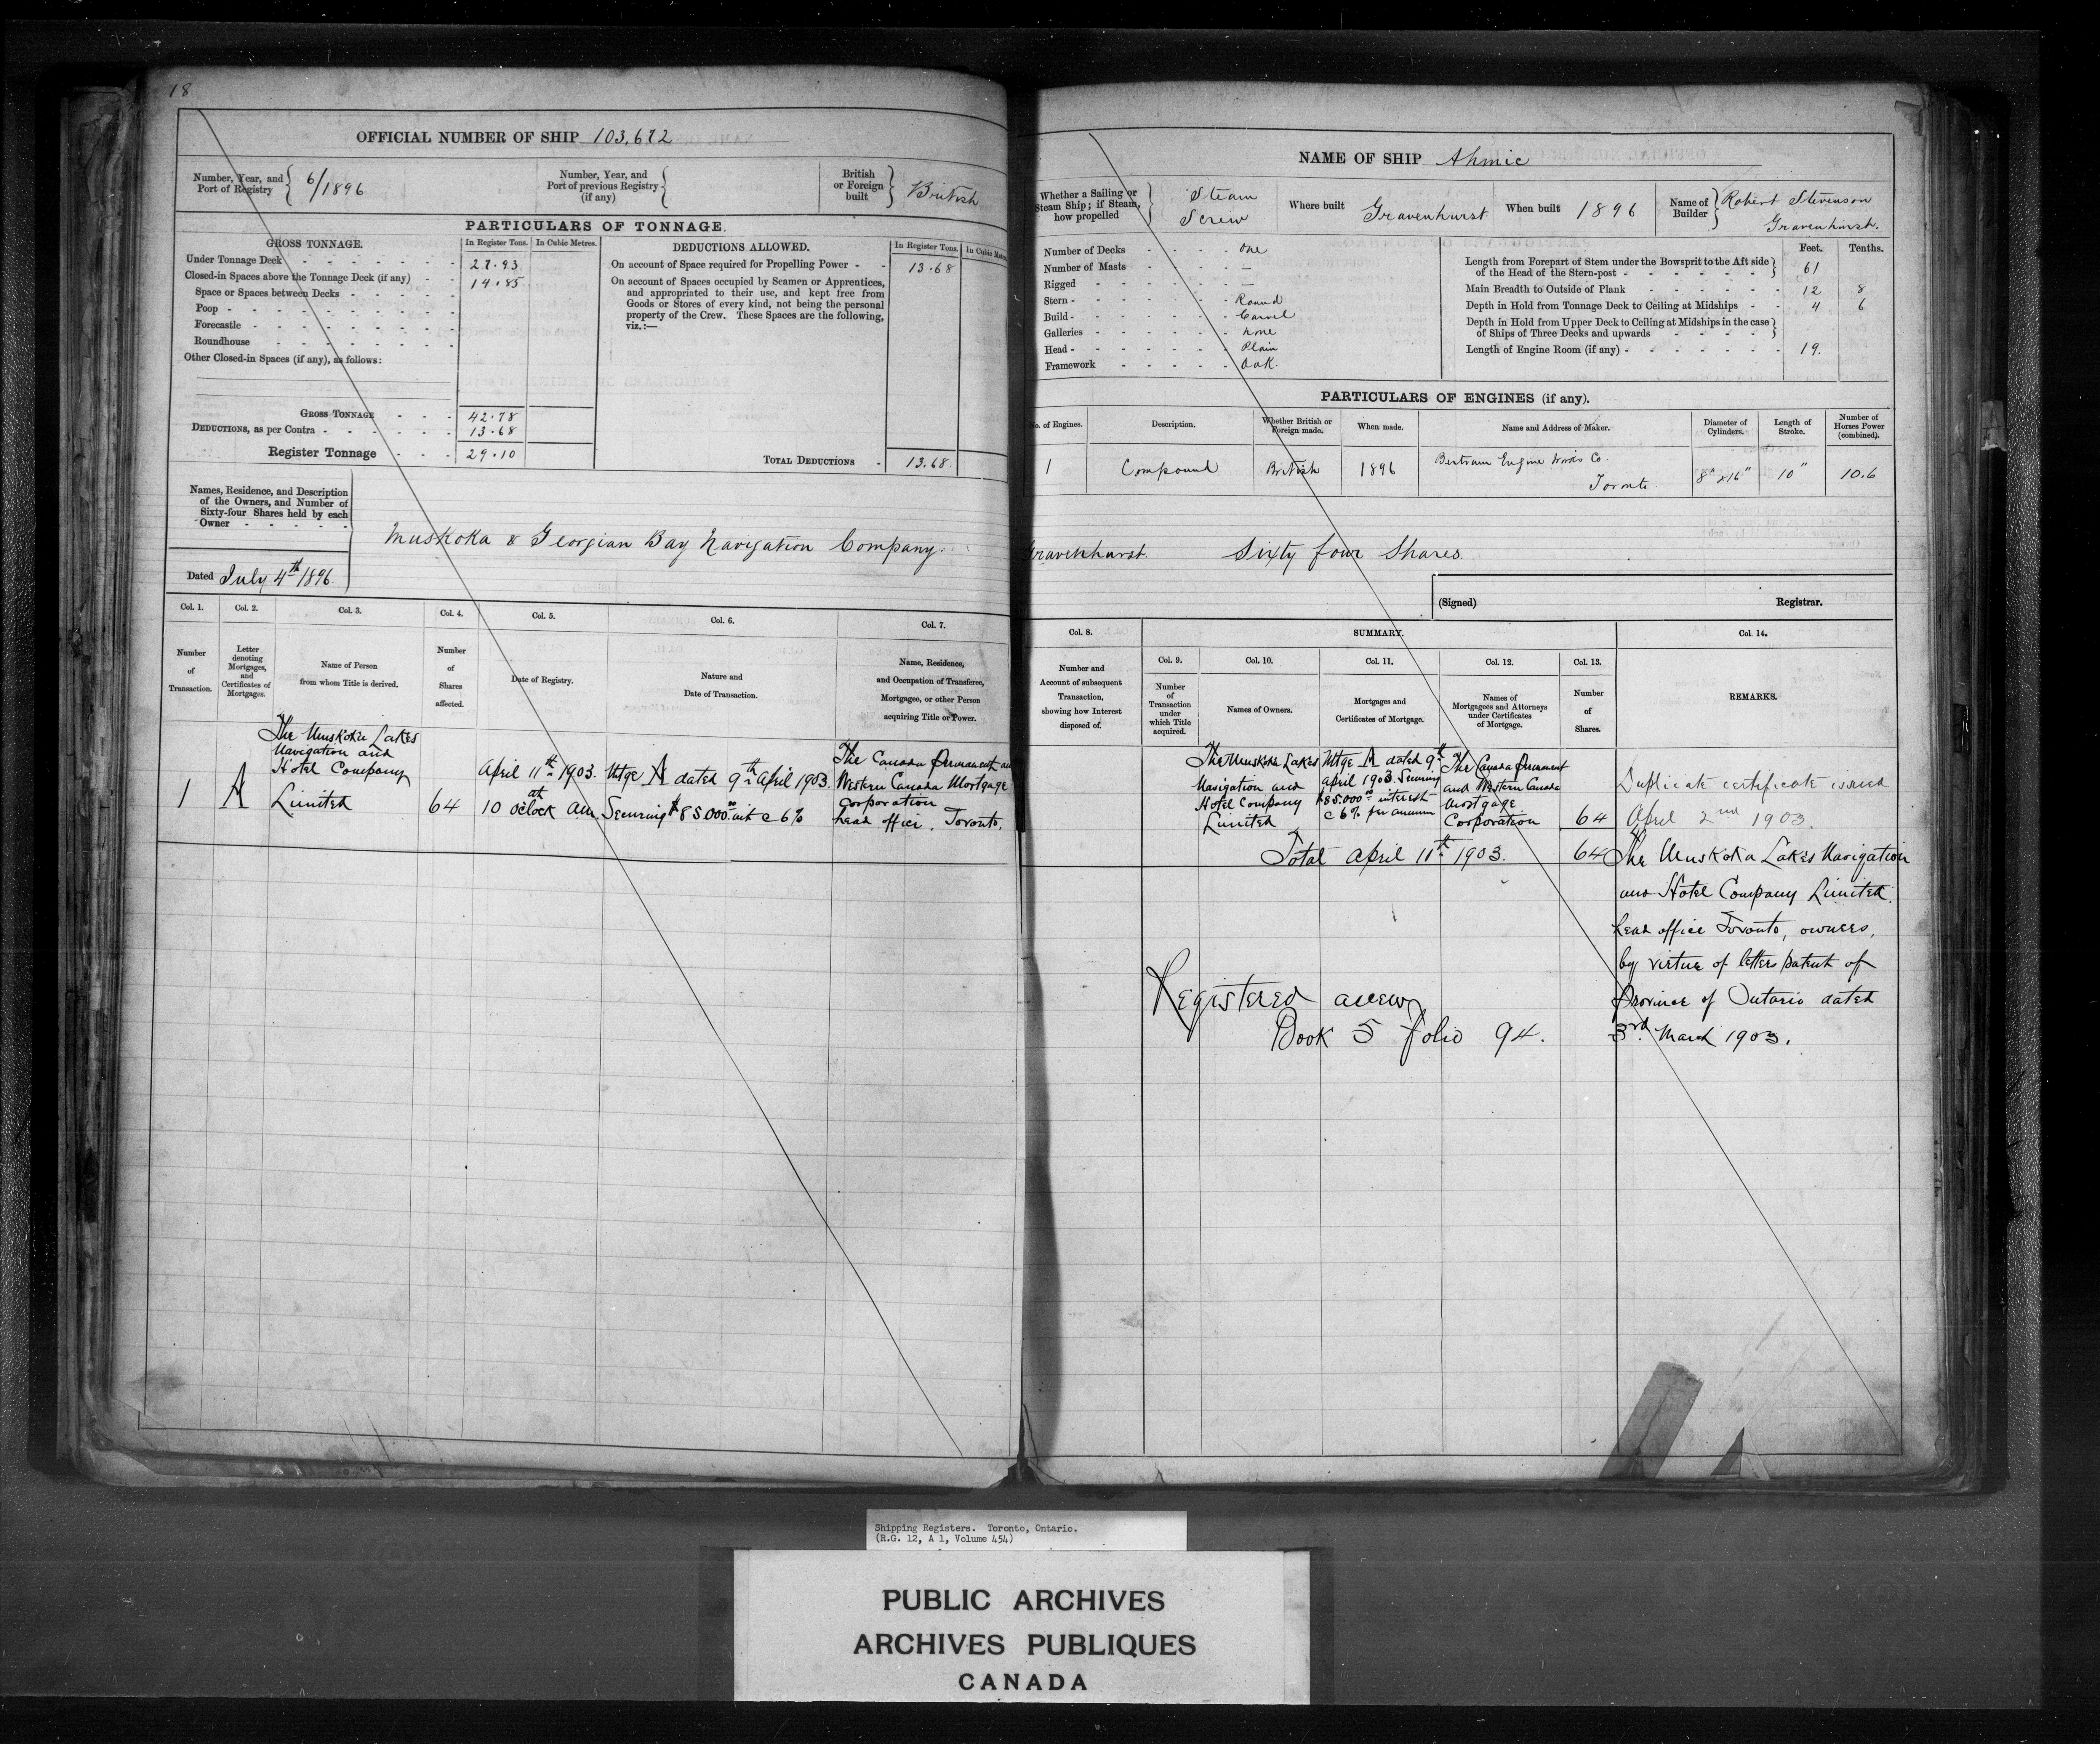 18
OFFICIAL NUMBER OF SHIP 103,672
Number, Year, and
Port of Registry
6/1896
Number, Year, and
Port of previous Registry
(if any)
British
or Foreign
built
British
PARTICULARS OF TONNAGE.
GROSS TONNAGE.
In Register Tons.
In Cubic Metres.
Under Tonnage Deck
27.93
Closed-in Spaces above the Tonnage Deck (if any)
14.85
Space or Spaces between Decks
Poop
Forecastle
Roundhouse
Other Closed-in Spaces (if any), as follows:
GROSS TONNAGE
42.78
DEDUCTIONS, as per Contra
13.68
Register Tonnage
29.10
DEDUCTIONS ALLOWED.
In Register Tons.
In Cubic Metres
On account of Space required for Propelling Power
13.68
On account of Spaces occupied by Seamen or Apprentices,
and appropriated to their use, and kept free from
Goods or Stores of every kind, not being the personal
property of the Crew. These Spaces are the following,
viz.:—
TOTAL DEDUCTIONS
13.68
Names, Residence, and Description
of the Owners, and Number of
Sixty-four Shares held by each
Owner
Dated July 4th 1896
Muskoka & Georgian Bay Navigation Company
NAME OF SHIP Ahmic
Whether a Sailing or
Steam Ship; if Steam,
how propelled
Steam
Screw
Where built
Gravenhurst
When built
1896
Name of
Builder
Robert Stevenson
Gravenhurst.
Number of Decks - One
Number of Masts —
Rigged —
Stern - Round
Build - Carvel
Galleries - none
Head - Plain
Framework - Oak.
Feet. Tenths.
Length from Forepart of Stem under the Bowsprit to the Aft side
of the Head of the Stern-post
61
Main Breadth to Outside of Plank
12 8
Depth in Hold from Tonnage Deck to Ceiling at Midships
4 6
Depth in Hold from Upper Deck to Ceiling at Midships in the case
of Ships of Three Decks and upwards
Length of Engine Room (if any)
19.
PARTICULARS OF ENGINES (if any).
No. of Engines.
Description.
Whether British or
Foreign made.
When made.
Name and Address of Maker.
Diameter of
Cylinders.
Length of
Stroke.
Number of
Horses Power
(combined).
1
Compound
British
1896
Bertram Engine Works Co
Toronto
8" x 16"
10"
10.6
Gravenhurst. Sixty four Shares
(Signed)
Registrar.
Col. 1.
Number
of
Transaction.
Col. 2.
Letter
denoting
Mortgages,
and
Certificates of
Mortgages.
Col. 3.
Name of Person
from whom Title is derived.
Col. 4.
Number
of
Shares
affected.
Col. 5.
Date of Registry.
Col. 6.
Nature and
Date of Transaction.
Col. 7.
Name, Residence,
and Occupation of Transferee,
Mortgagee, or other Person
acquiring Title or Power.
1
A
The Muskoka Lakes
Navigation and
Hotel Company
Limited
64
April 11th 1903.
10 oclock am.
Mtge A dated 9th April 1903
Securing $85000.00 int @ 6%
The Canada Permanent and
Western Canada Mortgage
Corporation
head office, Toronto.
Col. 8.
Number and
Account of subsequent
Transaction,
showing how Interest
disposed of.
SUMMARY.
Col. 9.
Number
of
Transaction
under
which Title
acquired.
Col. 10.
Names of Owners.
Col. 11.
Mortgages and
Certificates of Mortgage.
Col. 12.
Names of
Mortgagees and Attorneys
under Certificates
of Mortgage.
Col. 13.
Number
of
Shares.
Col. 14.
REMARKS.
The Muskoka Lakes
Navigation and
Hotel Company
Limited
Mtge A dated 9th
April 1903 Securing
$85.000.00 interest
@ 6% per annum
The Canada Permanent
and Western Canada
Mortgage
Corporation
64
Total April 11th 1903.
64
Duplicate certificate issued
April 2nd 1903.
The Muskoka Lakes Navigation
and Hotel Company Limited.
head office Toronto, owners,
by virtue of letters patent of
Province of Ontario dated
3rd March 1903.
Registered anew
Book 5 folio 94.
Shipping Registers. Toronto, Ontario.
(R.G. 12, A 1, Volume 454)
PUBLIC ARCHIVES
ARCHIVES PUBLIQUES
CANADA